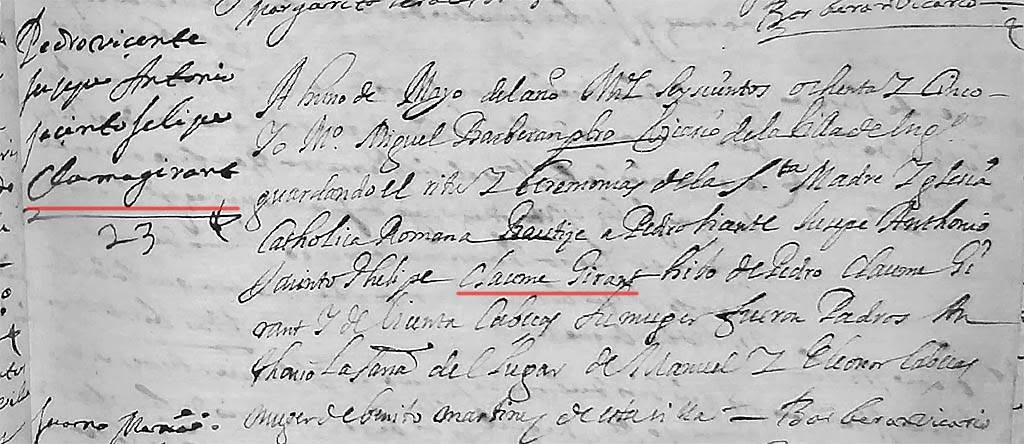 Barberan Vicario
Pedro vicente
Jusepe Antonio
Jacinto felipe
Clamagirant
23
A huno de Mayo del año Mil Seyscientos ochenta Y Cinco
Yo Mº Miguel Barberan pbro Vicario de la Villa de
guardando el rito Y Ceremonias de la Sta Madre Yglesia
Catholica Romana Bautize a Pedro Jusepe Anthonio
Jacinto Phelipe Claume Girant hijo de Pedro Claume Gi
rant Y de Vicenta Cabeças su muger fueron Padros An
thonio del Lugar de Manuel Y Eleonor Cabeças
muger de benito martines de esta villa — Barberan vicario